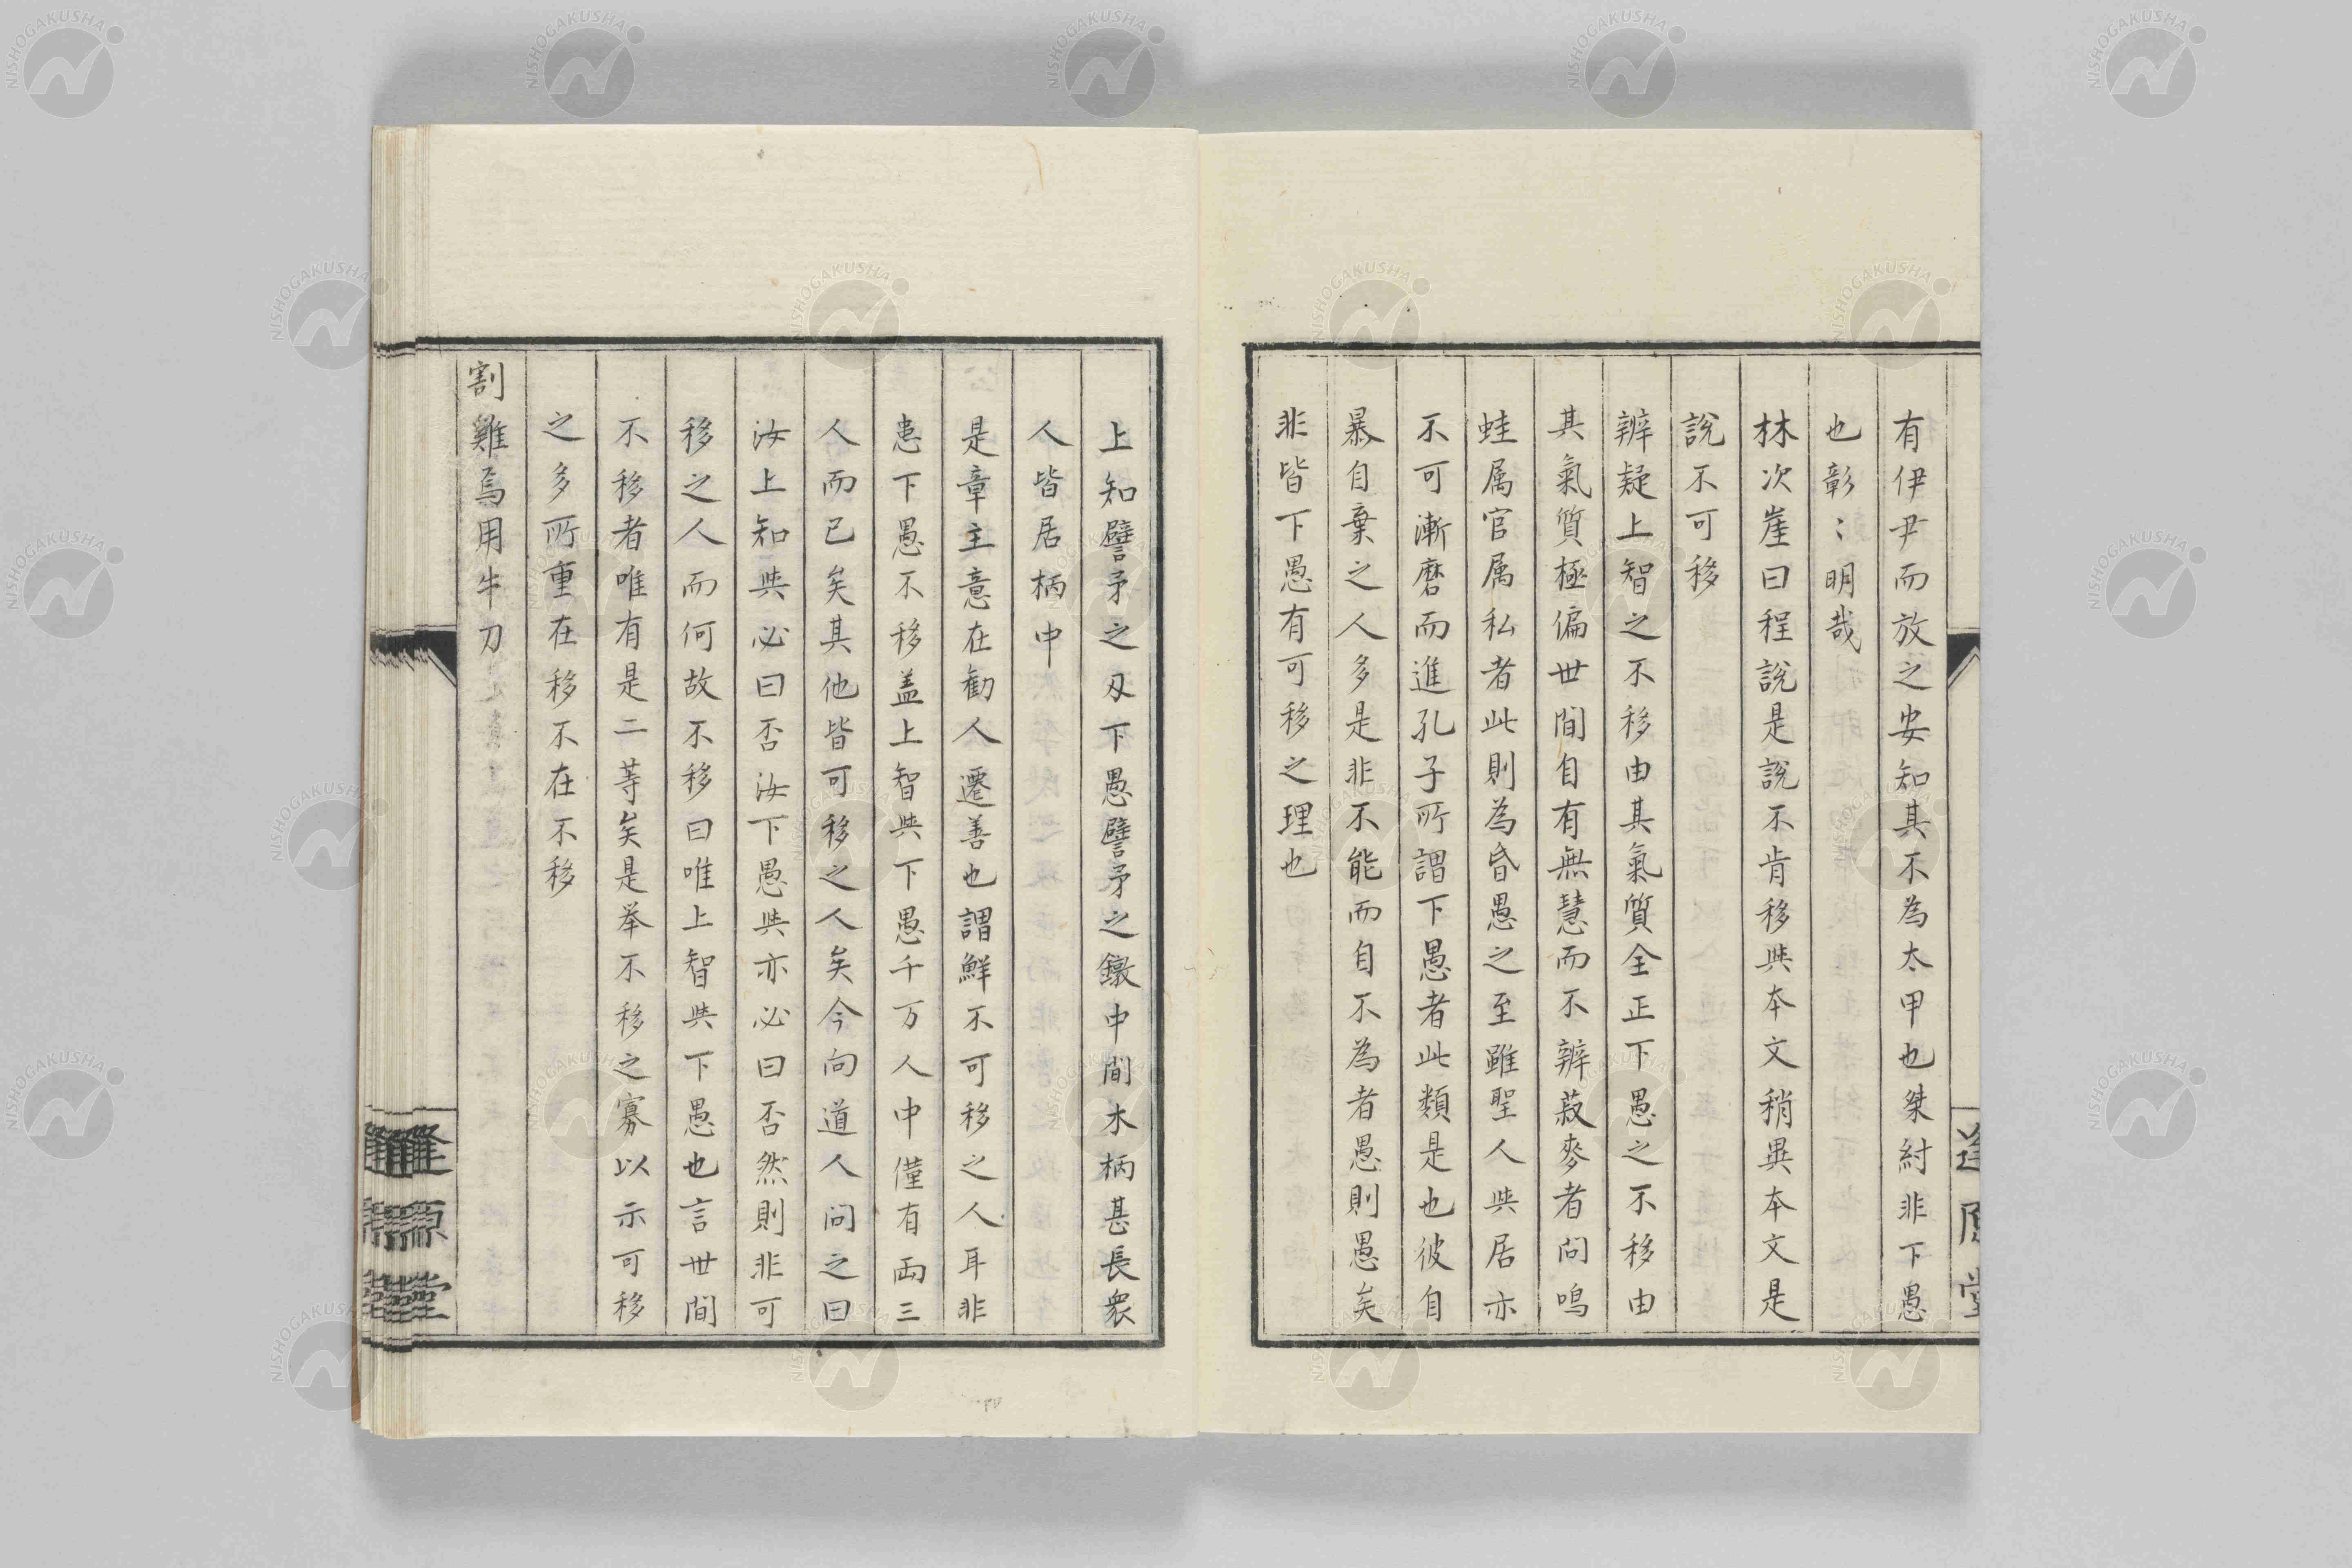 有伊尹而放之安知其不為太甲也桀紂非下愚
也彰〻明哉
林次崖曰程說是說不肯移與本文稍異本文是
說不可移
辨疑上智之不移由其氣質全正下愚之不移由
其氣質極偏世間自有無慧而不辨菽麥者問鳴
蛙属官属私者此則為昏愚之至雖聖人與居亦
不可漸磨而進孔子所謂下愚者此類是也彼自
暴自棄之人多是非不能而自不為者愚則愚矣
非皆下愚有可移之理也
上知譬矛之刄下愚譬矛之鐓中間木柄甚長衆
人皆居柄中
是章主意在勧人遷善也謂鮮不可移之人耳非
恚下愚不移盖上智與下愚千万人中僅有両三
人而已矣其他皆可移之人矣今向道人問之曰
汝上知與必曰否汝下愚與亦必曰否然則非可
移之人而何故不移曰唯上智與下愚也言世間
不移者唯有是二等矣是挙不移之寡以示可移
之多所重在移不在不移
割雞焉用牛刀
逢原堂